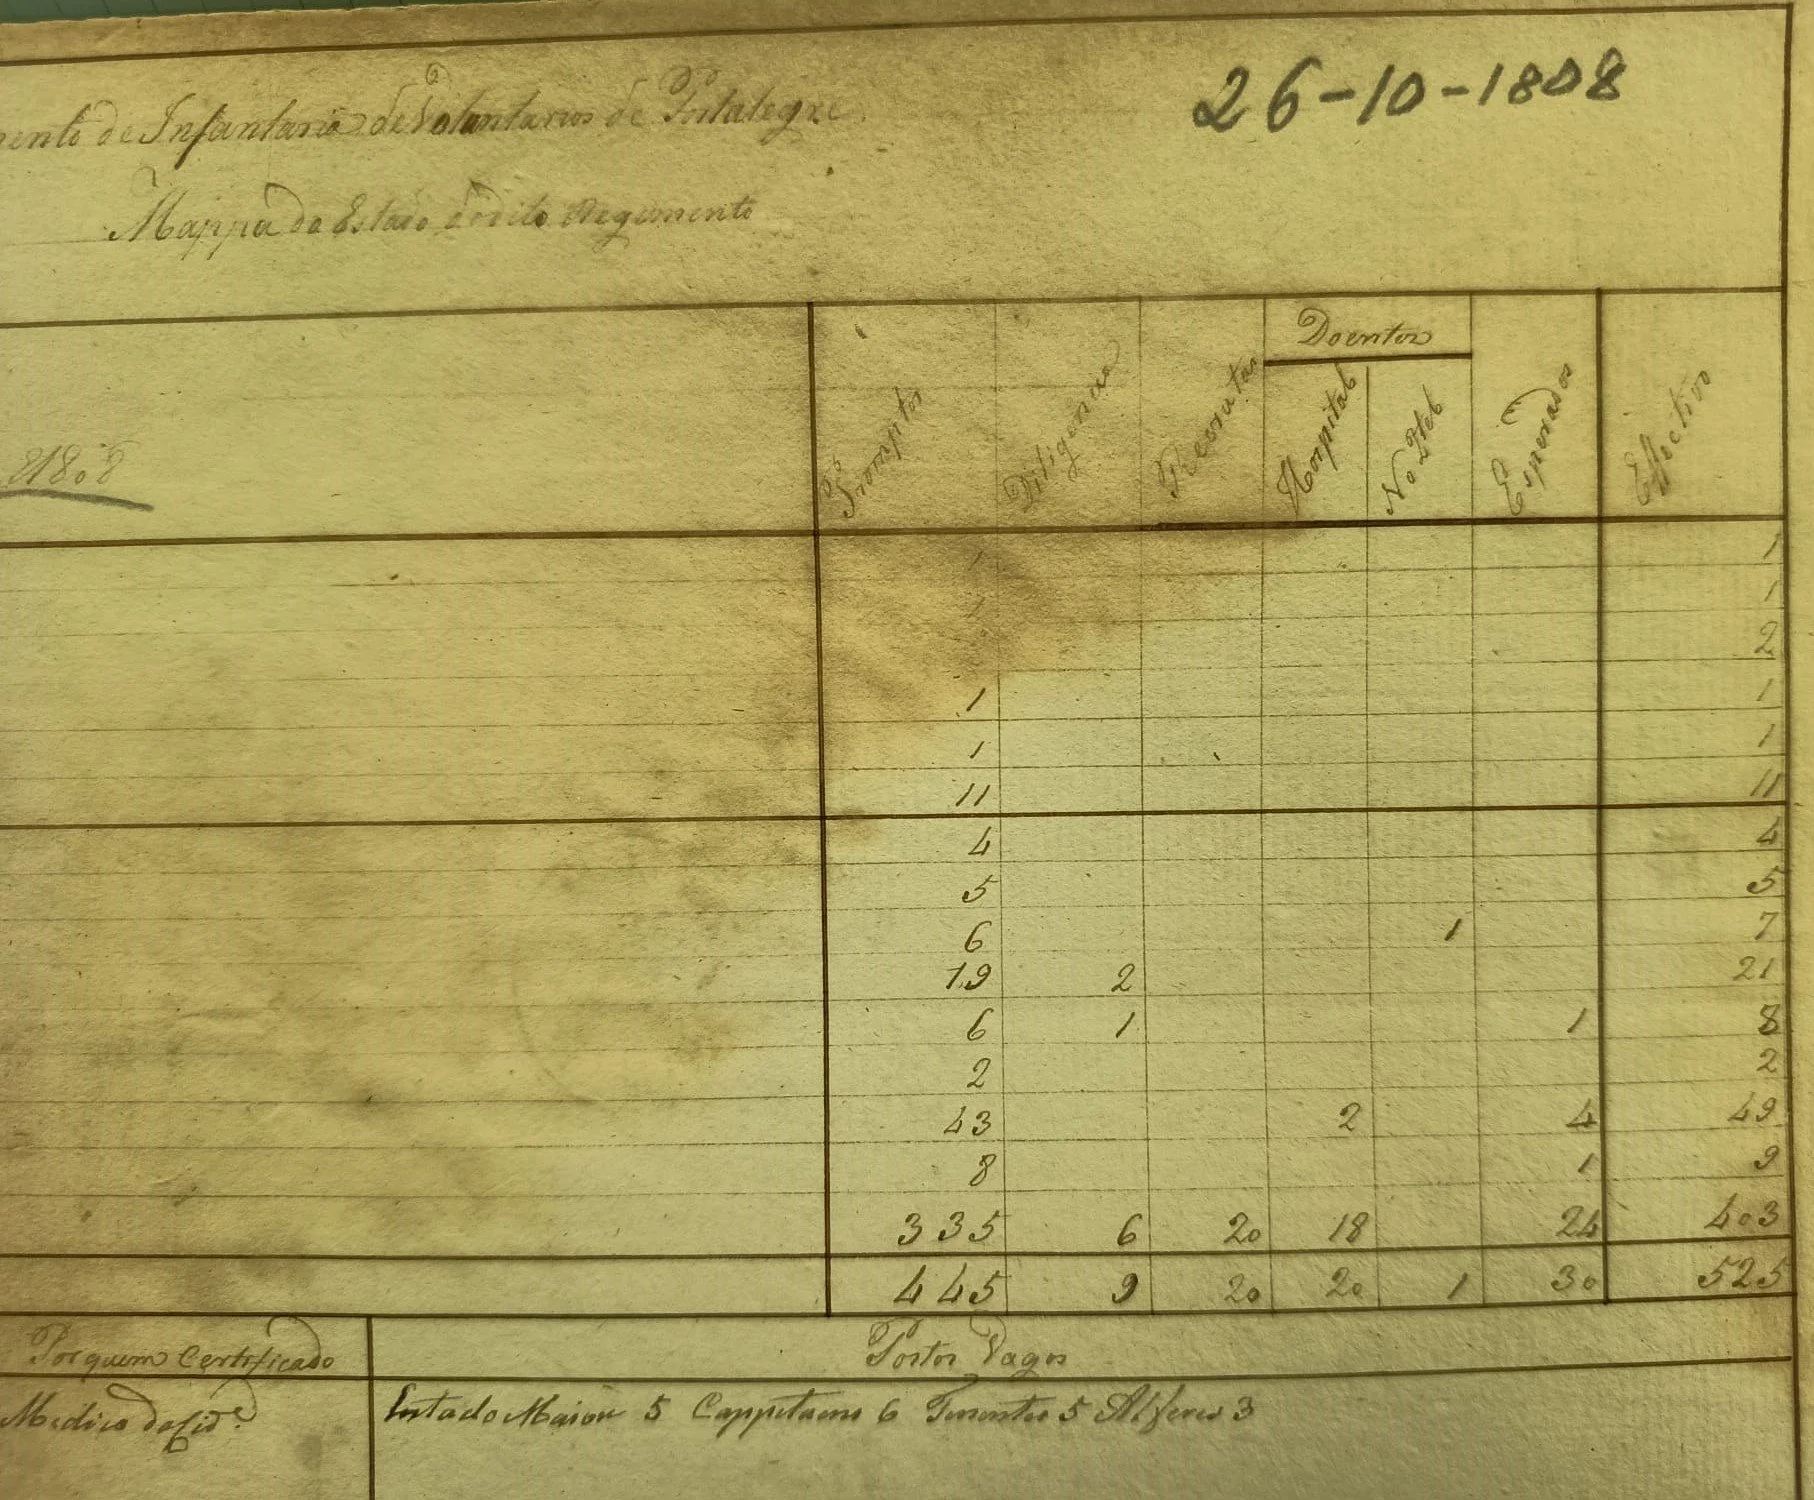 26-10-1808
de Infantaria de Voluntarios de Portalegre
Mappa do Estado do dito Regimento
1808
Promptos Diligencia Recrutas Doentes Hospital No Qtel Esperados Effectivo
1 1
1 1
2
1 1
1 1
11 11
4 4
5 5
6 1 7
19 2 21
6 1 1 8
2 2
43 2 4 49
8 1 9
335 6 20 18 24 403
445 9 20 20 1 30 525
Porquem Certificado Postos Vagos
Medico da Cid.e Estado Maior 5 Cappitaens 6 Tenentes 5 Alferes 3